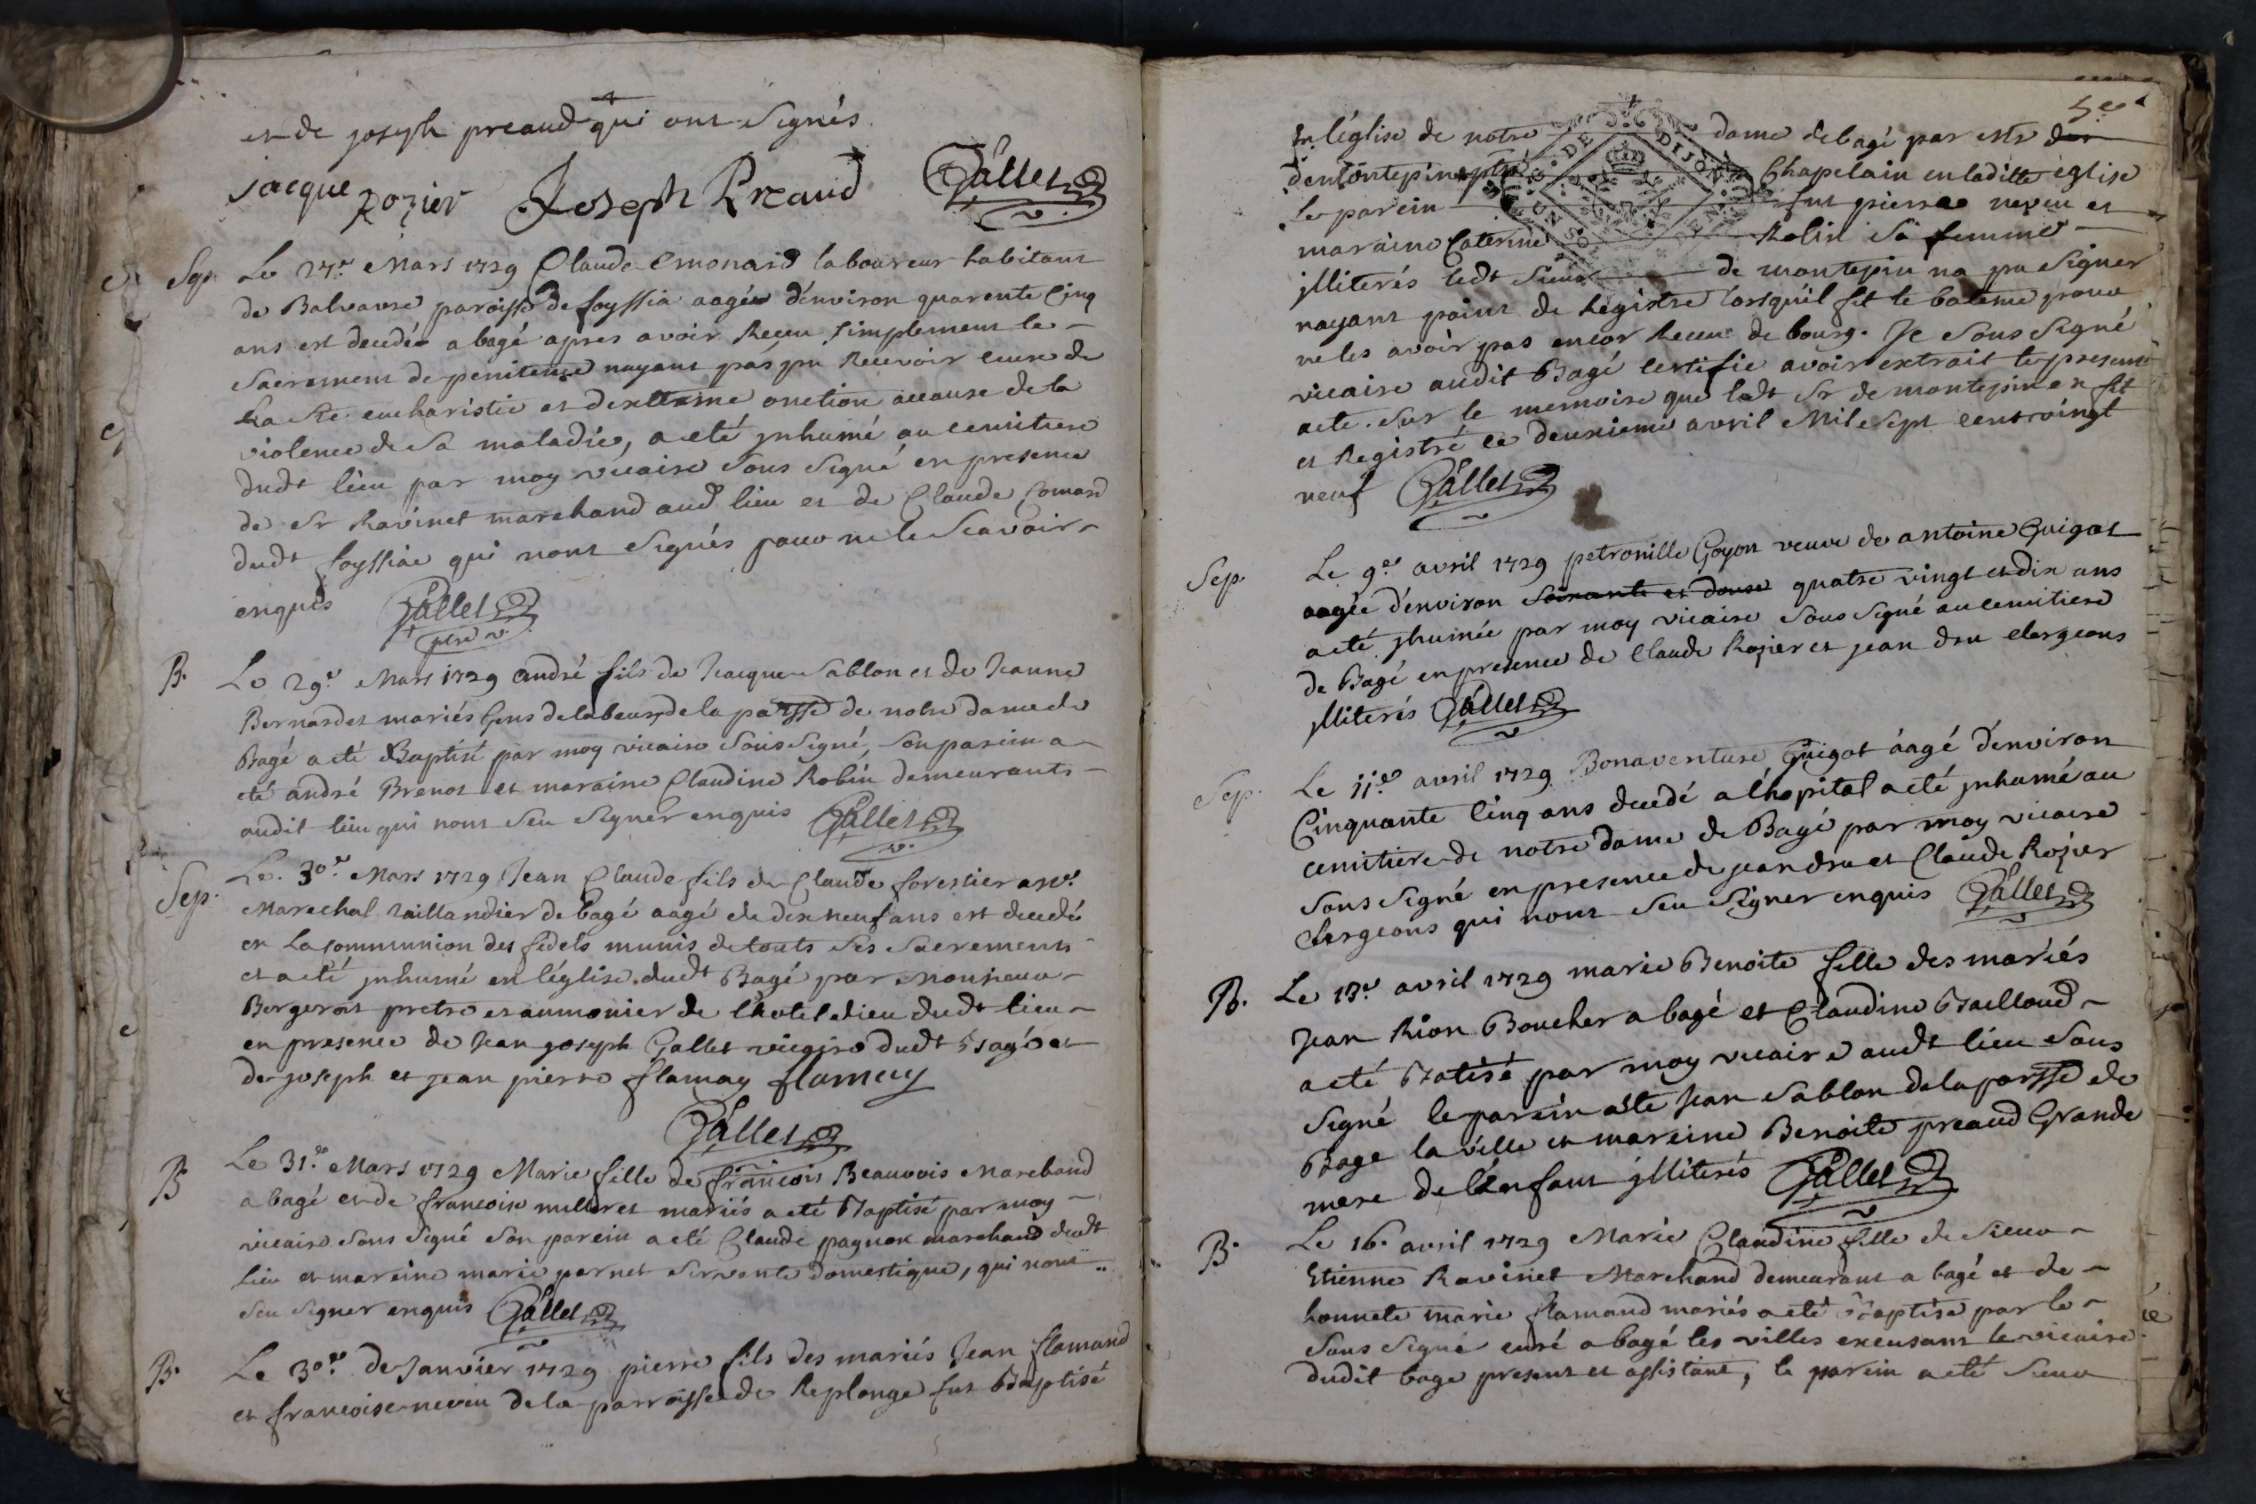 et de joseph preaud qui ont Signés
Jacque Rozier Joseph Preaud Gallet
Sep. Le 27.e Mars 1729 Claude Emonard laboureur habitant
de Balvavre paroisse de foyssia aagée d'environ quarente Cinq
ans est decedée a bagé apres avoir Receu simplement le
Sacrement de penitence nayant pas pu Recevoir celui de
La Ste. eucharistie et dextreme onction acause de la
violence de Sa maladie, a eté jnhumé au cemitiere
dudt lieu par moy vicaire Sous Signé en presence
de Sr Ravinet marchand aud lieu et de Claude Comard
dudt foyssia qui nont Signés pour ne le Scavoir
enquis Gallet
ptre v.
B. Le 29.e Mars 1729 andré fils de Jacque Sablon et de Jeanne
Bernardet mariés Gens de labeur de la parsse de notre dame de
Bagé a eté Baptisé par moy vicaire Sous Signé, Son parein a
eté andré Brenot et maraine Claudine Robin demeurants
audit lieu qui nont Seu Signer enquis Gallet
v.
Sep. Le. 30.e Mars 1729 Jean Claude fils de Claude forestier
Marechal taillandier de bagé aagé de dix neuf ans est decedé
en La communion des fidels munis de touts Ses Sacrements
et a eté jnhumé en léglise dudt Bagé par monsieur
Bergerot pretre et aumonier de lhotel dieu dudt lieu
en presence de Jean joseph Gallet vicaire dudt Bagé et
de joseph et jean pierre flamay flamay
Gallet
B Le 31.e Mars 1729 Marie fille de francois Beauvois Marchand
a bagé et de francoise milleret mariés a eté Baptisé par moy
vicaire Sous Signé Son parein a eté Claude pagnon marchand dudt
lieu et maraine marie pernet Servente domestique, qui nont
Seu Signer enquis Gallet
B. Le 30.e de Janvier 1729 pierre fils des mariés Jean flamand
et francoise neveu de la parroisse de Replonge fut Baptisé
5.e
En léglise de notre dame de bagé par Mr
demontepin ptre Chapelain en laditte église
Le parein fut pierre neveu et
maraine Caterine Robin Sa femme
jlliterés ledt Sieur de montepin na pu Signer
nayant point de Registre lorsquil fit le bateme pour
ne les avoir pas encor Receu de bourg. Je Sous Signé
vicaire audit Bagé certifie avoir extrait le present
acte Sur le memoire que ledt Sr de montepin en fit
et Registré ce deuxieme avril Mil Sept cent vingt
neuf Gallet
DE DIJON
Sep. Le 9.e avril 1729 petronille Goyon veuve de antoine Guigot
aagée d'environ Soixante et douse quatre vingt et dix ans
a eté jhumée par moy vicaire Sous Signé au cemitiere
de Bagé en presence de Claude Rozier et jean dru clergeons
jlliterés Gallet
Sep. Le 11.e avril 1729 Bonaventure Guigot aagé d'environ
Cinquante Cinq ans decedé a lhopital a eté jnhumé au
cemitiere de notre dame de Bagé par moy vicaire
Sous Signé en presence de jean dru et Claude Rozier
clergeons qui nont Seu Signer enquis Gallet
B. Le 13.e avril 1729 marie Benoite fille des mariés
Jean Rion Boucher a bagé et Claudine Bailloud
a eté Batisé par moy vicaire audt lieu Sous
Signé le parein a eté Jean Sablon de la parsse de
Bage la ville et mareine Benoite preaud Grande
mere de lenfant jlliterés Gallet
B. Le 16. avril 1729 Marie Claudine fille de Sieur
Etienne Ravinet Marchand demeurant a bagé et de
honnete marie flamand mariés a eté Baptisé par le
Sous Signé curé a bagé les villes excusant le vicaire
dudit bage present et assistant, le parein a eté Sieur